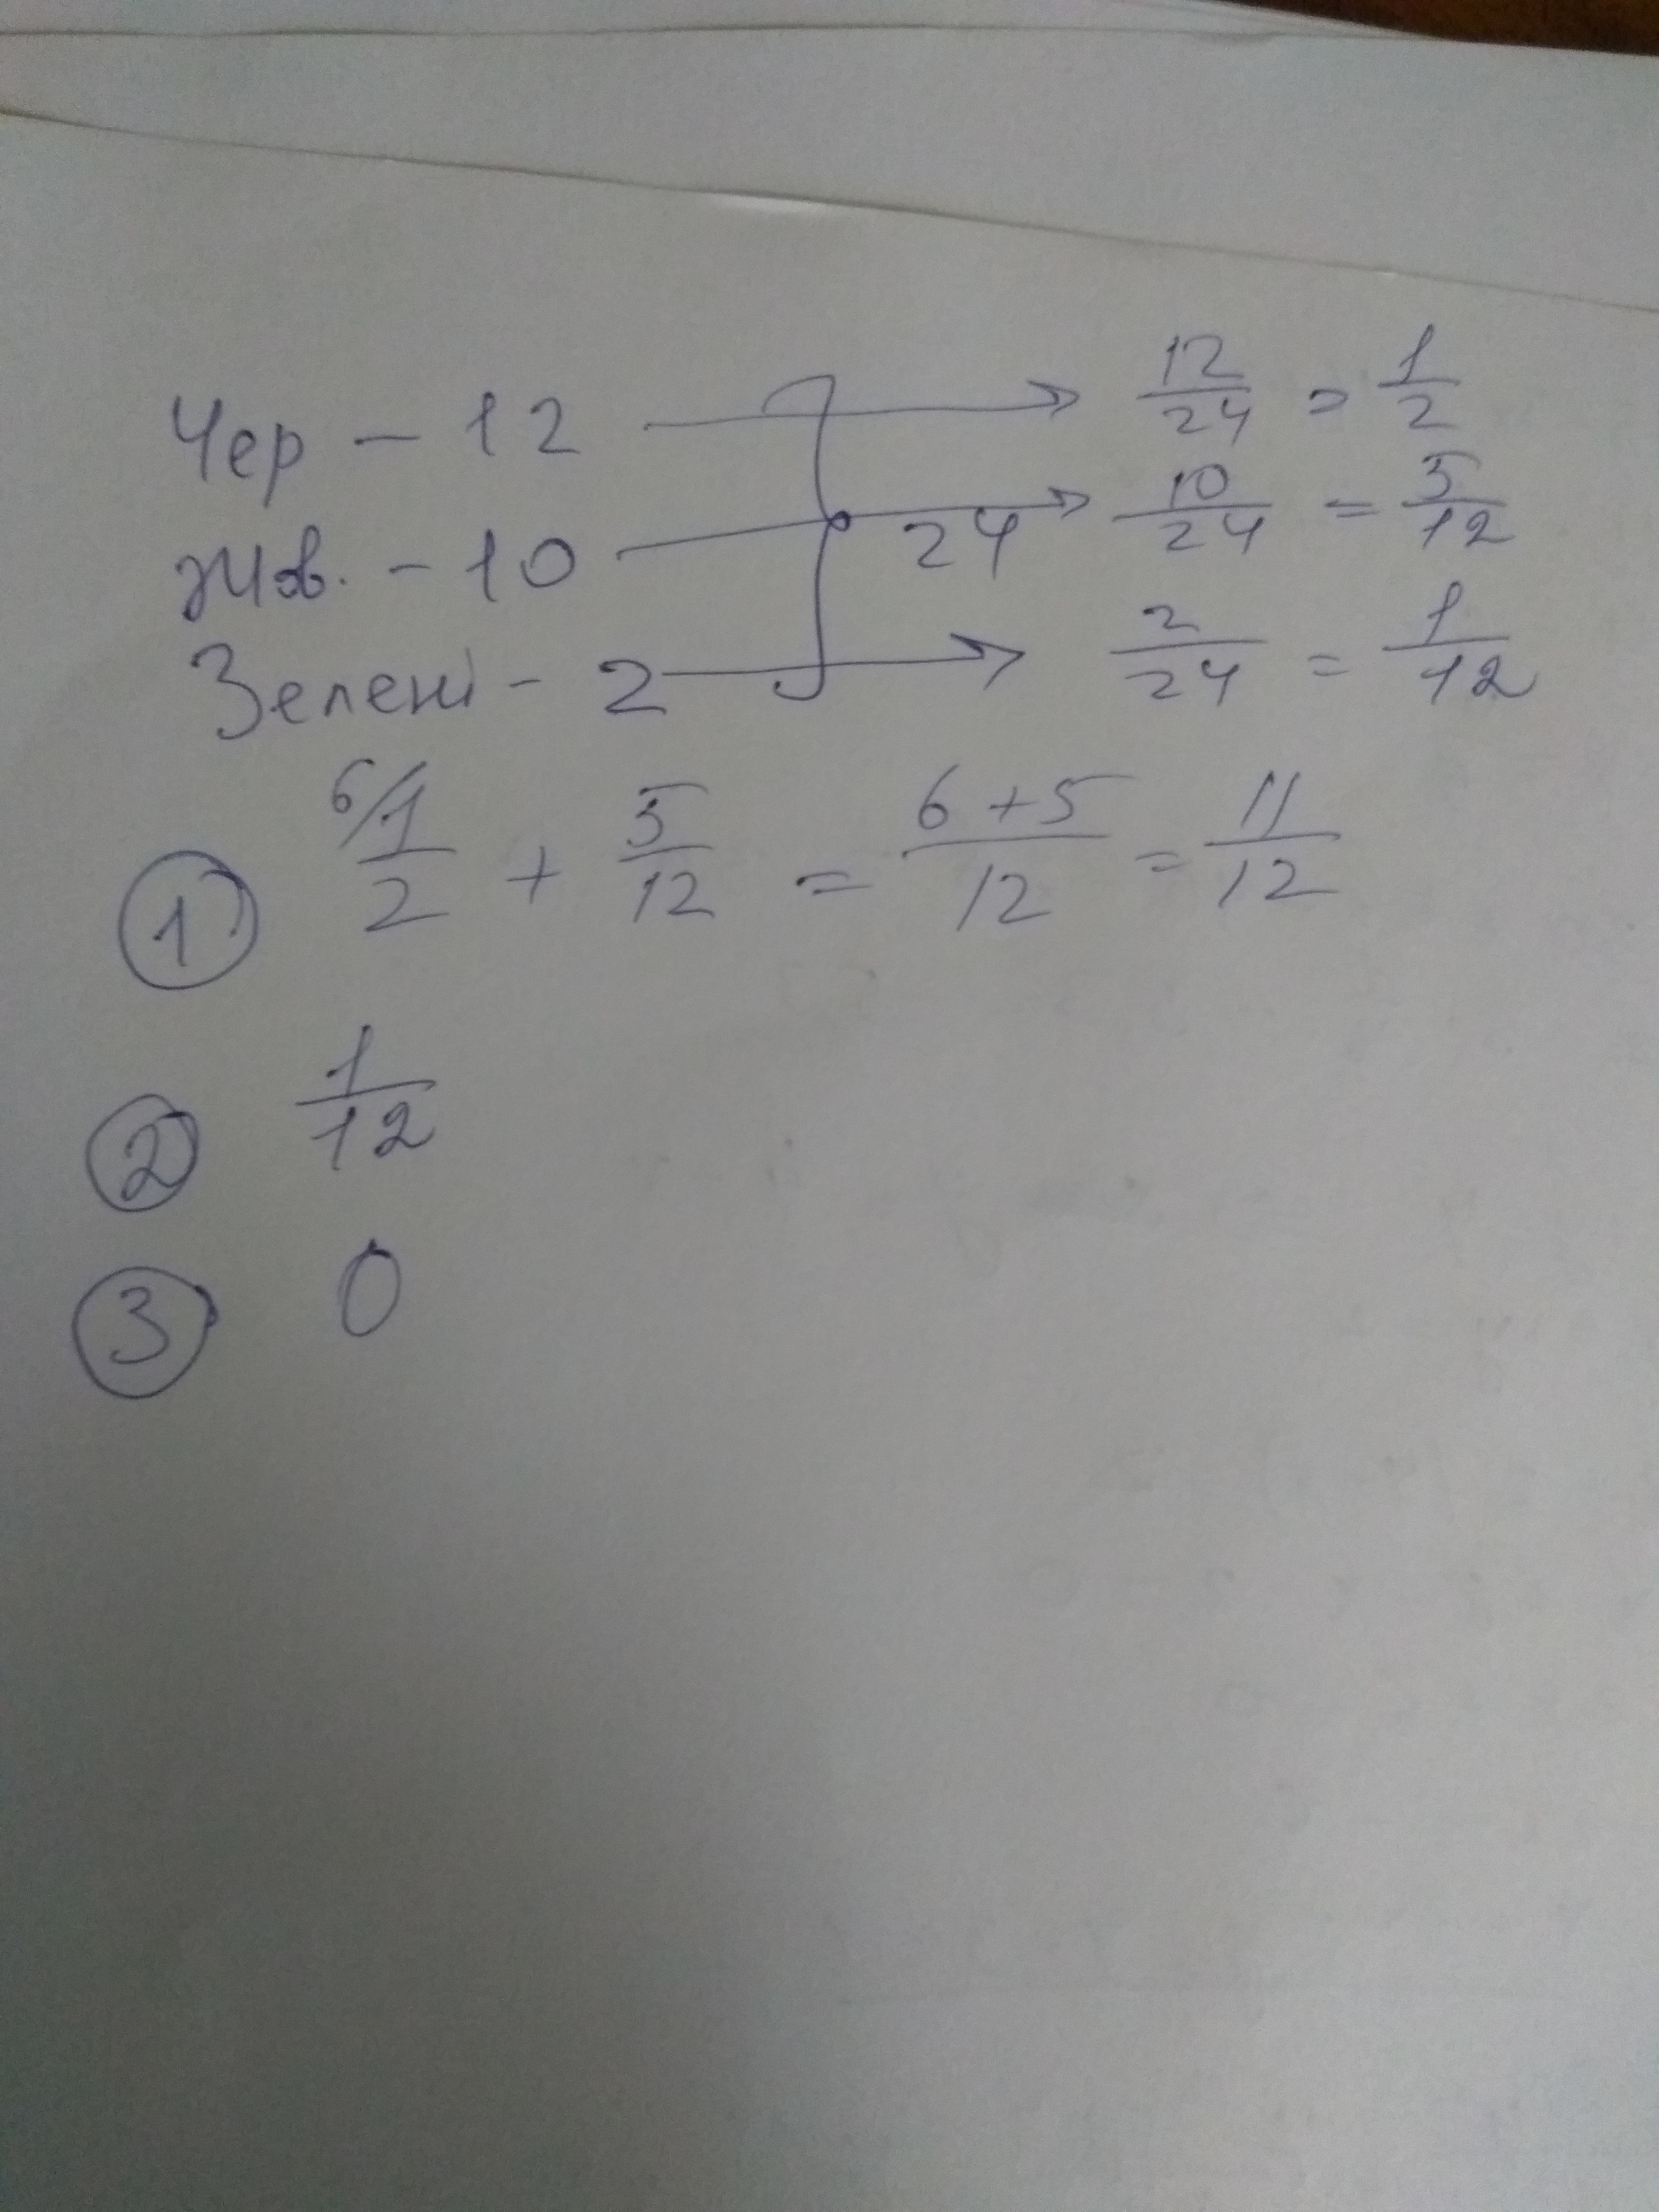 Чер - 12 → 12/24 = 1/2
Жов. - 10 → 24 10/24 = 5/12
Зелені - 2 → 2/24 = 1/12
① 6/ 1/2 + 5/12 = 6+5/12 = 11/12
② 1/12
③ 0